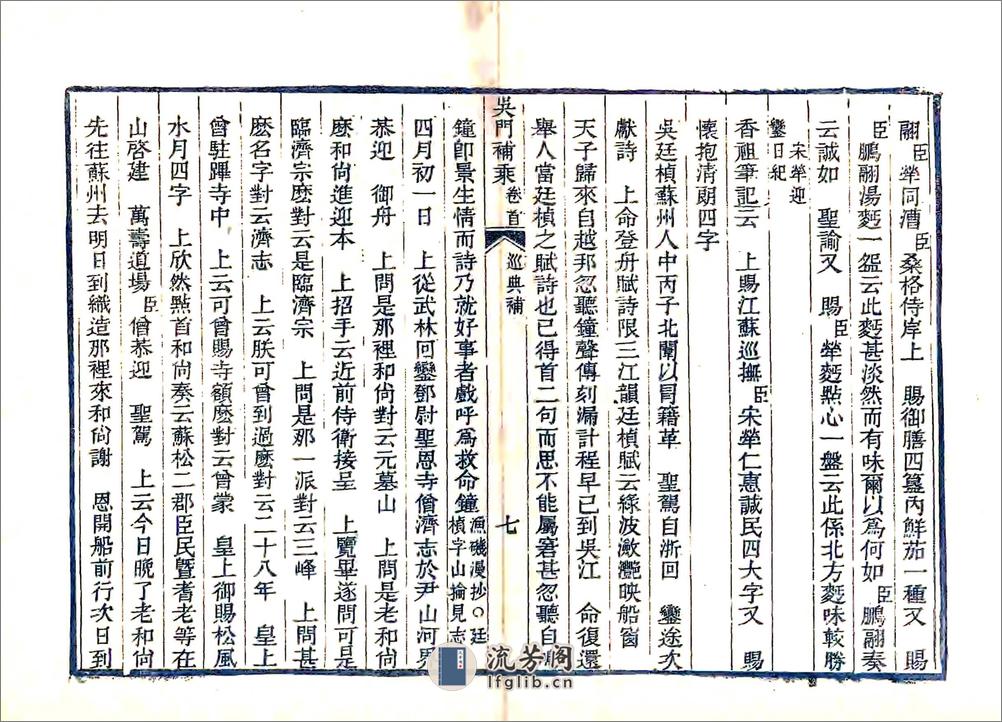 翮臣犖同漕臣桑格侍岸上　賜御膳四簋內鮮茄一種又　賜
臣鵬翮湯麪一盌云此麪甚淡然而有味爾以爲何如臣鵬翮奏
云誠如　聖諭又　賜臣犖麪點心一盤云此係北方麪味較勝
宋犖迎
鑾日紀
香祖筆記云　上賜江蘇巡撫臣宋犖仁惠誠民四大字又　賜
懷抱清朗四字
吳廷楨蘇州人中丙子北闈以冒籍革　聖駕自浙回　鑾途次
獻詩　上命登舟賦詩限三江韻廷楨賦云綠波瀲灩映船窗
天子歸來自越邦忽聽鐘聲傳刻漏計程早已到吳江　命復還
舉人當廷楨之賦詩也已得首二句而思不能屬窘甚忽聽自
吳門補乘　卷首　巡典補　七
鐘卽景生情而詩乃就好事者戲呼爲救命鐘
漁磯漫抄○廷
楨字山掄見志
四月初一日　上從武林回鑾鄧尉聖恩寺僧濟志於尹山河
恭迎　御舟　上問是那裡和尚對云元墓山　上問是老和尚
麽和尚進迎本　上招手云近前侍衛接呈　上覽畢遂問可是
臨濟宗麽對云是臨濟宗　上問是那一派對云三峰　上問甚
麽名字對云濟志　上云朕可曾到過麽對云二十八年　皇上
曾駐蹕寺中　上云可曾賜寺額麽對云曾蒙　皇上御賜松風
水月四字　上欣然點首和尚奏云蘇松二郡臣民暨耆老等在
山啓建　萬壽道場臣僧恭迎　聖駕　上云今日晚了老和尚
先往蘇州去明日到織造那裡來和尚謝　恩開船前行次日到
流芳閣
lfglib.cn